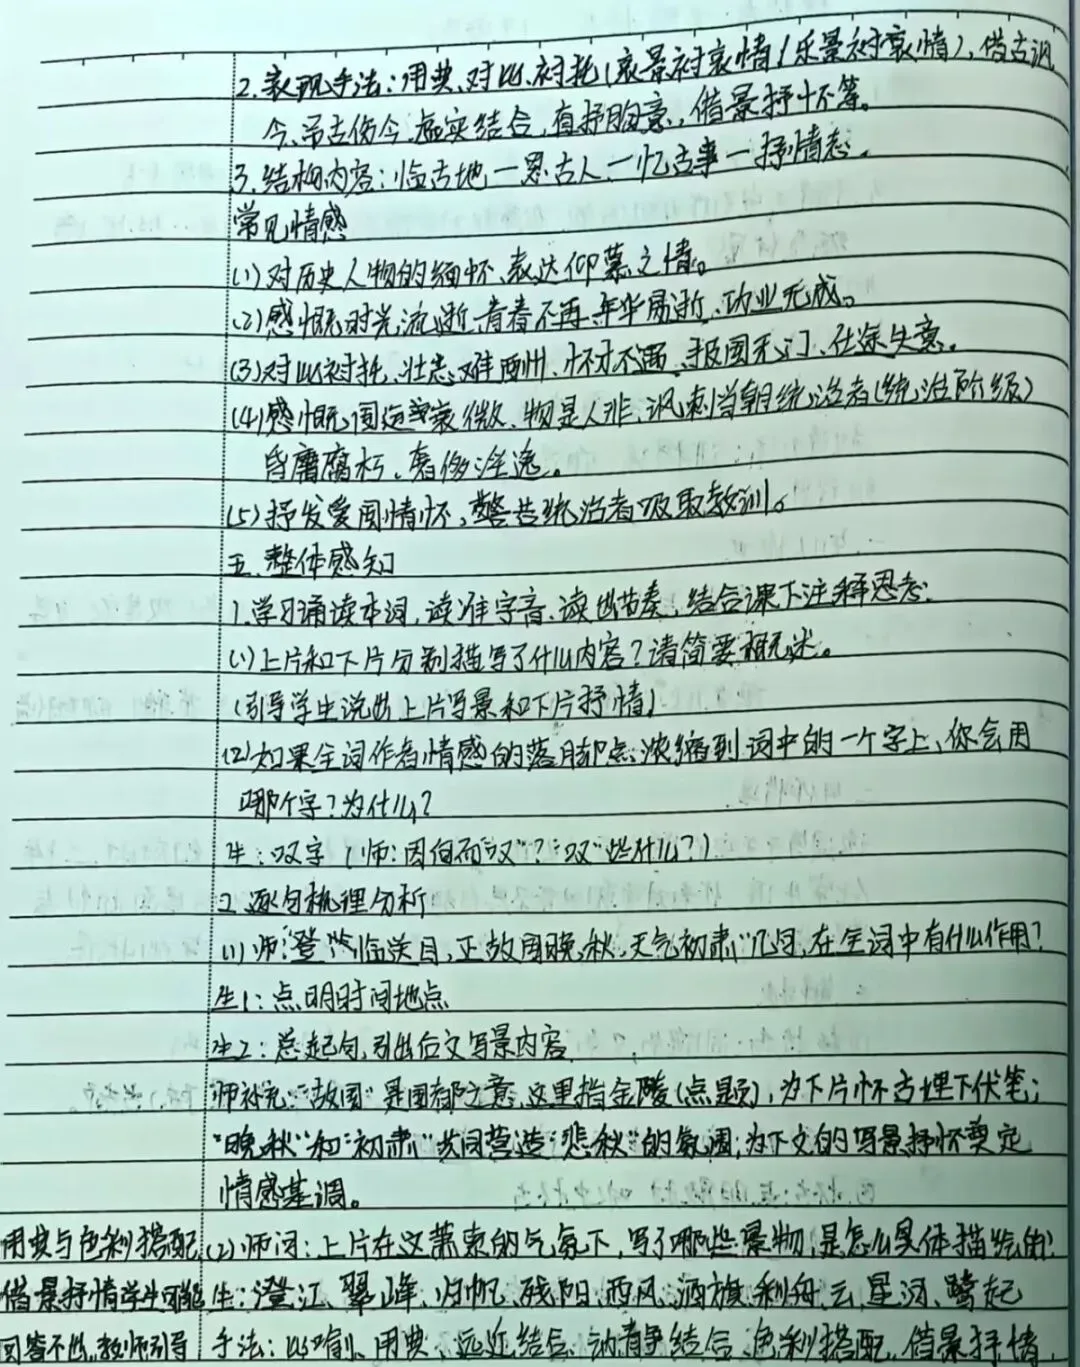 2.表现手法:用典、对比、衬托(哀景衬哀情/乐景衬哀情)、借古讽
今、吊古伤今、虚实结合、直抒胸意、借景抒怀等。
3.结构内容:临古地—思古人—忆古事—抒情志。
常见情感
(1)对历史人物的缅怀、表达仰慕之情。
(2)感慨时光流逝、青春不再、年华易逝、功业无成。
(3)对比衬托、壮志难酬、怀才不遇、报国无门、仕途失意。
(4)感慨国运衰微、物是人非、讽刺当朝统治者(统治阶级)
昏庸腐朽、奢侈淫逸。
(5)抒发爱国情怀,警告统治者吸取教训。
五.整体感知
1.学习诵读本词,读准字音、读出节奏,结合课下注释思考.
(1)上片和下片分别描写了什么内容?请简要概述。
(引导学生说出上片写景和下片抒情)
(2)如果全词作者情感的落脚点浓缩到词中的一个字上,你会用
哪个字?为什么?
生:叹字(师:因何而“叹”?“叹”些什么?)
2.逐句梳理分析
(1)师:“登临送目,正故国晚秋,天气初肃”几句,在全词中有什么作用?
生1:点明时间地点
生2:总起句,引出后文写景内容
师补充:“故国”是国都之意,这里指金陵(点题),为下片怀古埋下伏笔;
“晚秋”和“初肃”共同营造“悲秋”的氛围;为下文的写景抒怀奠定
情感基调。
用典与色彩搭配 (2)师问:上片在这萧索的气氛下,写了哪些景物,是怎么具体描绘的?
借景抒情学生可能 生:澄江、翠峰、归帆、残阳、西风、酒旗、彩舟、云、星河、鹭起
回答不出,教师引导 手法:比喻、用典、远近结合、动静结合、色彩搭配、借景抒情.